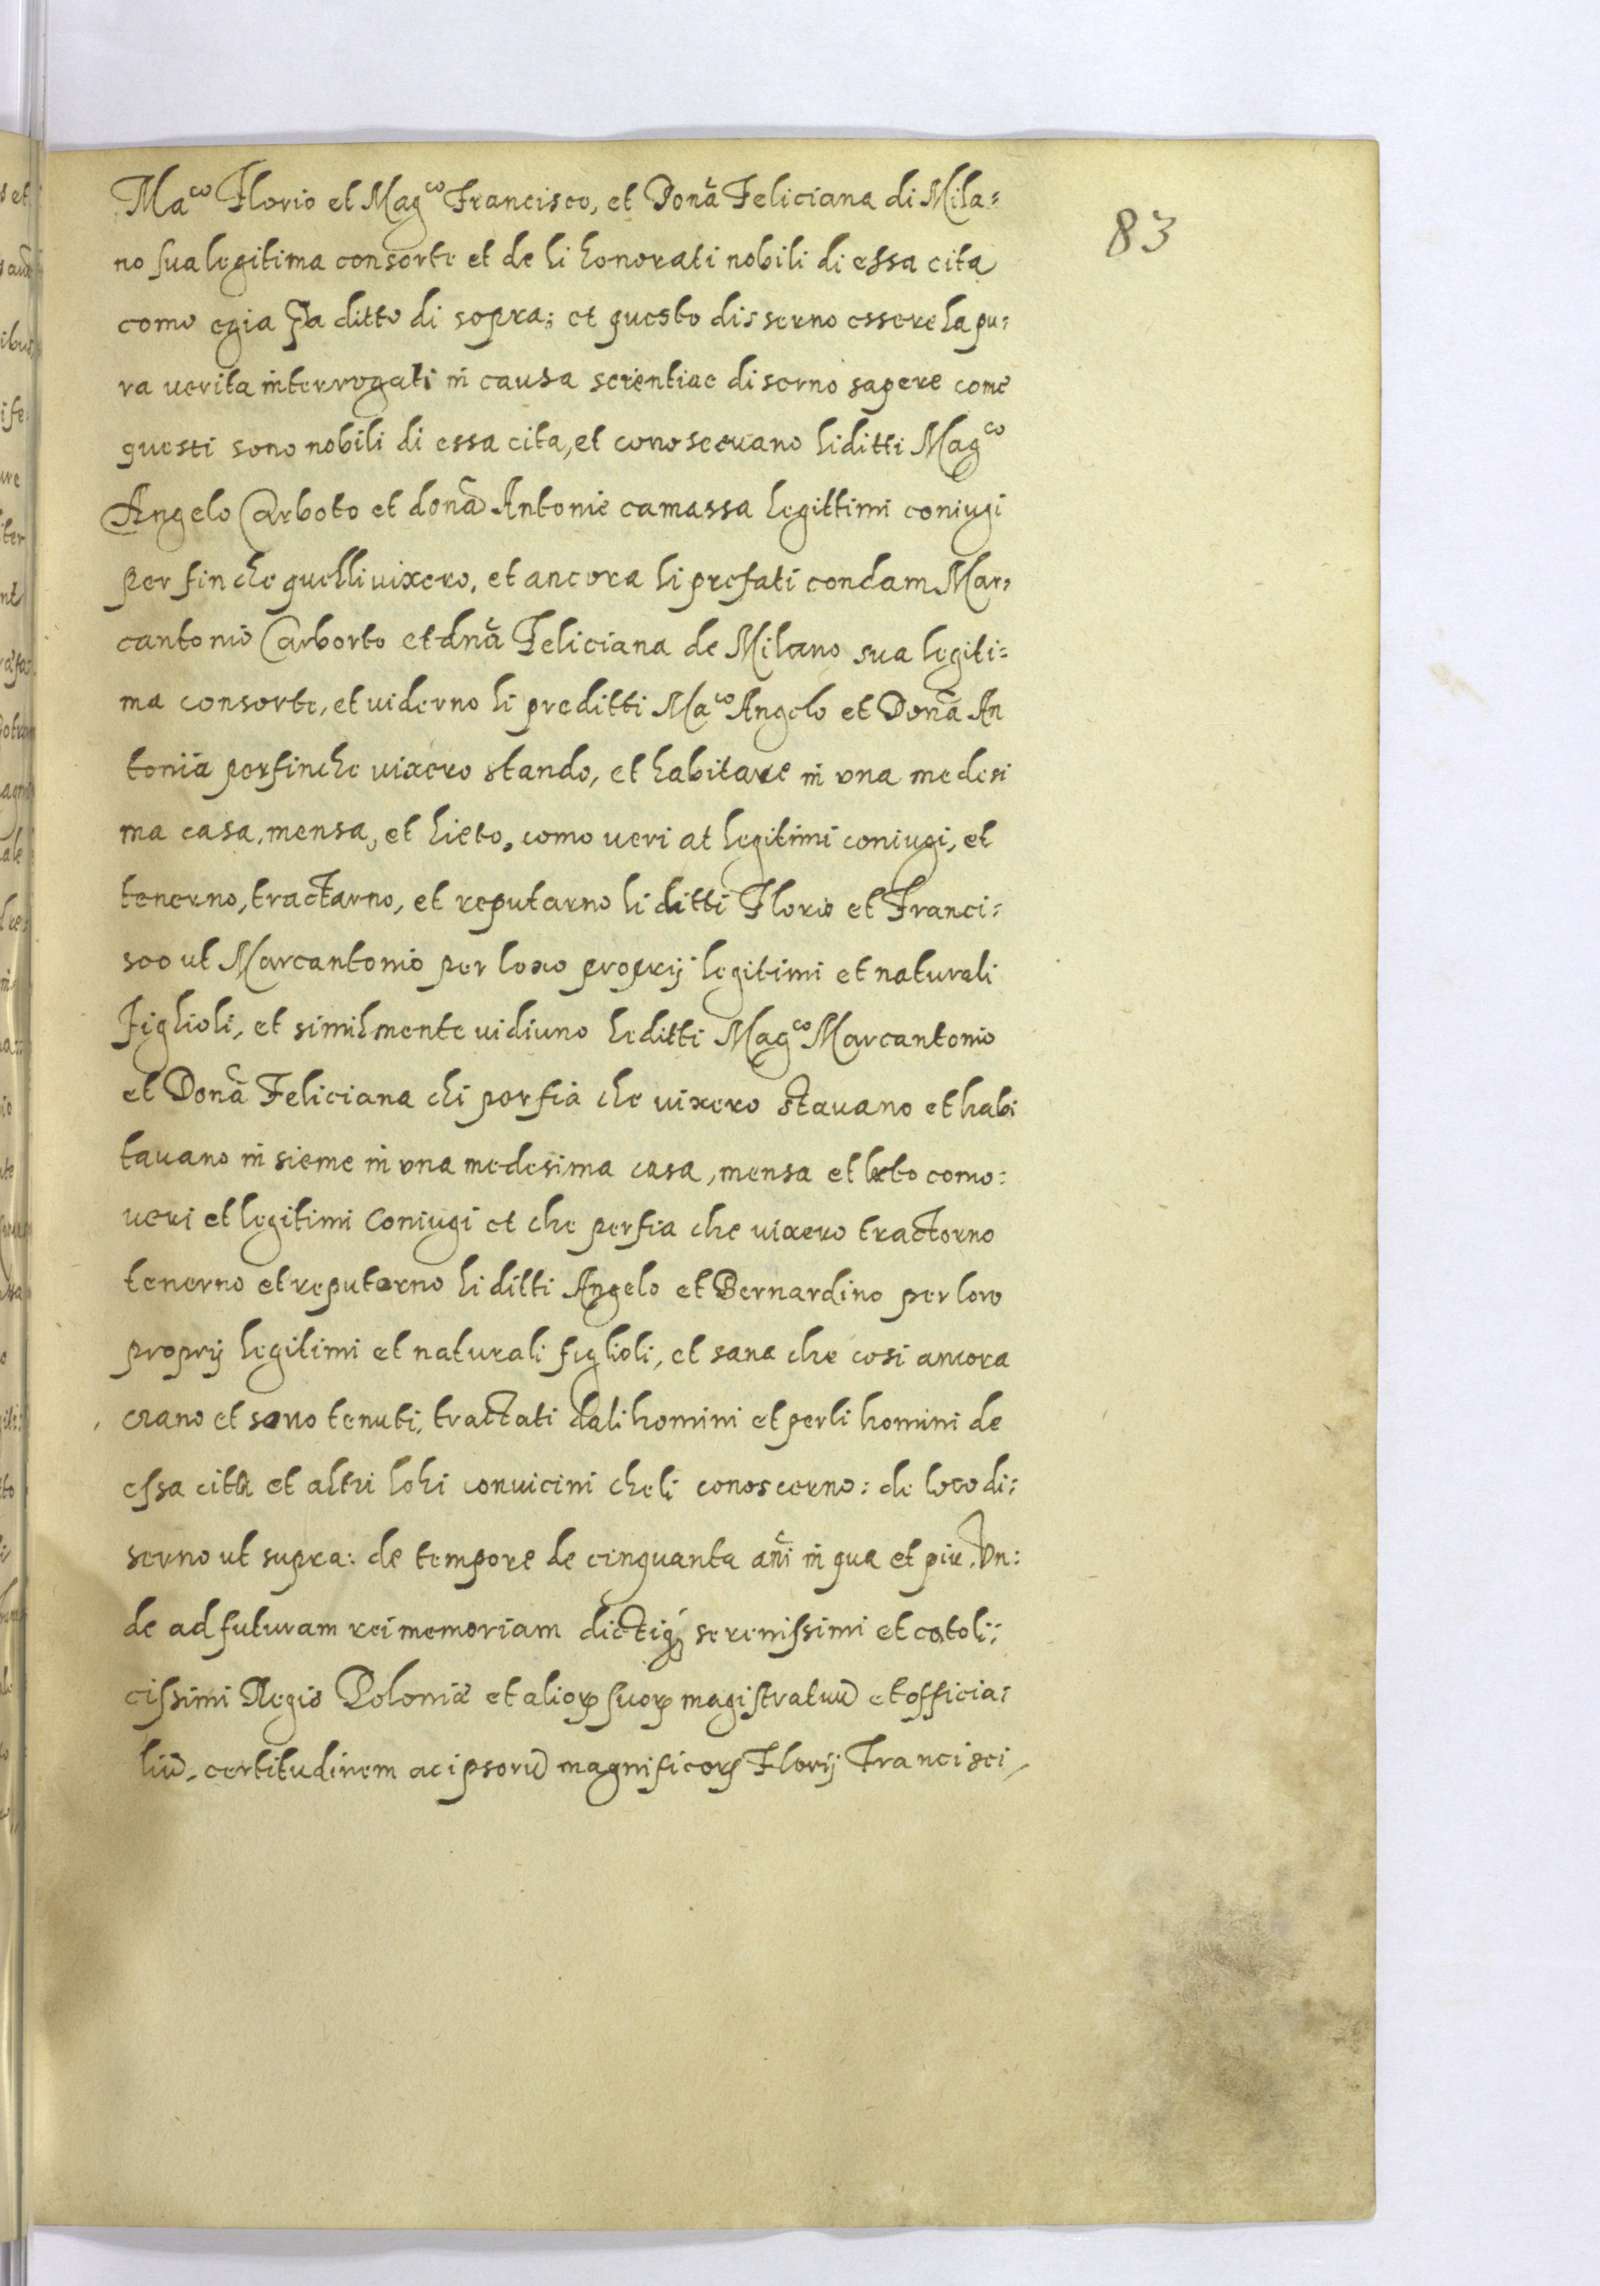 Ma^co Florio et Mag^co Francisco, et Dona Feliciana di Mila=
83
no sua legitima consorte et de li honorati nobili di essa cita
como egia sta ditto di sopra; et questo disserno essere la pu=
ra verita interrogati in causa scientiae diserno sapere come
questi sono nobili di essa cita, et conoscevano li ditti Mag^co
Angelo Carboto et dona Antonie camassa legittimi coniugi
per fin che quelli vixero, et ancora li prefati condam Mar=
cantonio Carborto et dna Feliciana de Milano sua legiti=
ma consorte, et viderno li preditti Ma^co Angelo et Dona An
tonia perfinche vixero stando, et habitare in una medesi
ma casa, mensa, et lieto, como veri at legitimi coniugi, et
tenerno, tractarno, et reputarno li ditti Florio et Franci=
sco ut Marcantonio per loro proprij legitimi et naturali
figlioli, et similmente vidiuno li ditti Mag^co Marcantonio
et Dona Feliciana chi perfia che vixero stavano et habi
tavano in sieme in una medesima casa, mensa et leto como:
veri et legitimi coniugi et che perfia che vixero tractorno
tenerno et reputorno li ditti Angelo et Bernardino per loro
proprij legitimi et naturali figlioli, et sana che cosi ancora
erano et sono tenuti, tractati dali homini et perli homini de
essa citta et altri lohi convicini cheli conoscerno: de loco di=
serno ut supra: de tempore de cinquanta ani in qua et piu. Vn:
de ad futuram rei memoriam dictiq; serenissimi et catoli:
cissimi Regis Poloniæ et alior suor magistratuu et officia=
liu, certitudinem ac ipsoru magnificor Florij Francisci